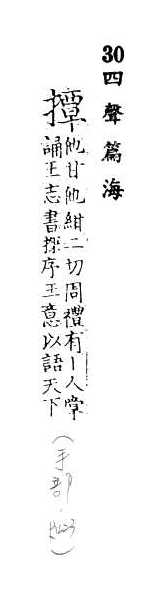 30 四聲篇海
撢他甘他紺二切周禮有丨人掌
誦王志書撢序王意以語天下
(手部